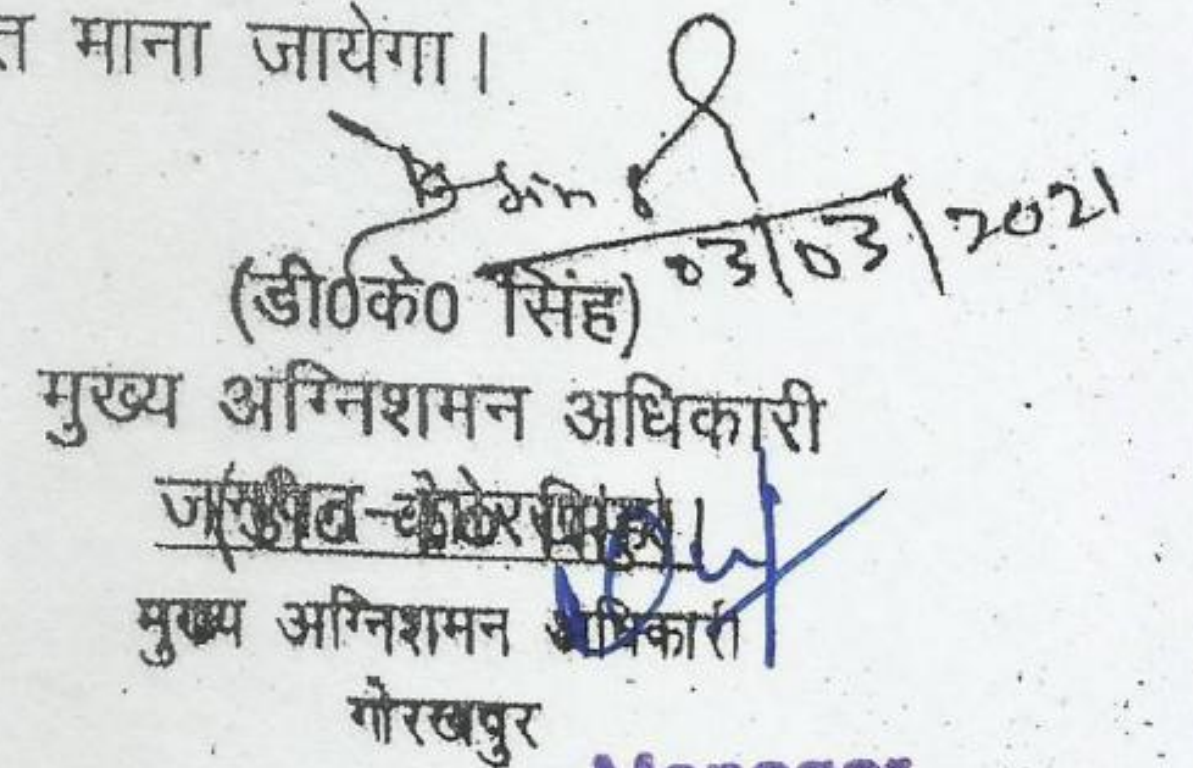 त माना जायेगा।
03/03/2021
(डी0के0 सिंह)
मुख्य अग्निशमन अधिकारी
मुख्य अग्निशमन अधिकारी
गोरखपुर
Manager